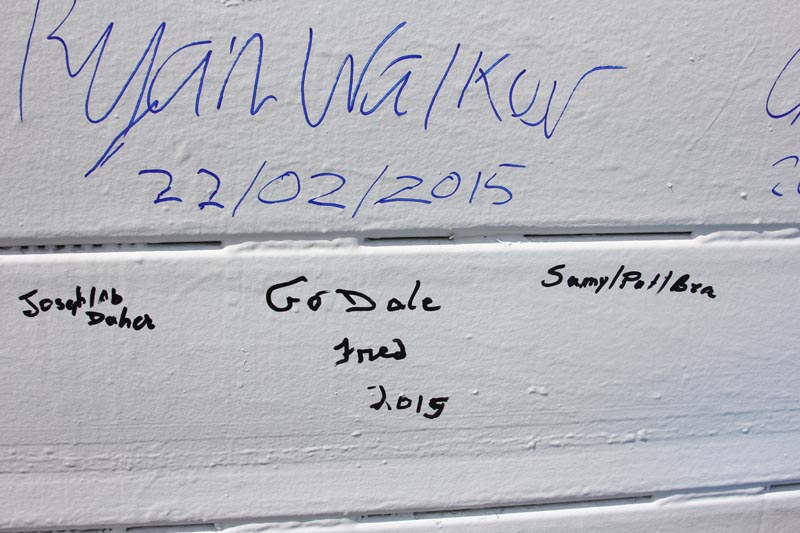 Ryan Walker
22/02/2015
Joseph/Ab
Daher
Go Dale
Fred
2015
Samy/Pat/Bra